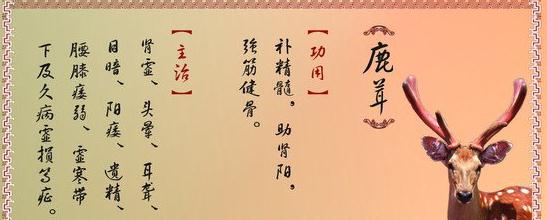 鹿茸
【功用】
补精髓。助肾阳。
强筋健骨。
【主治】
肾虚、头晕、耳聋、
目暗、阳痿、遗精、
腰膝痿弱、虚寒带
下及久病虚损等症。